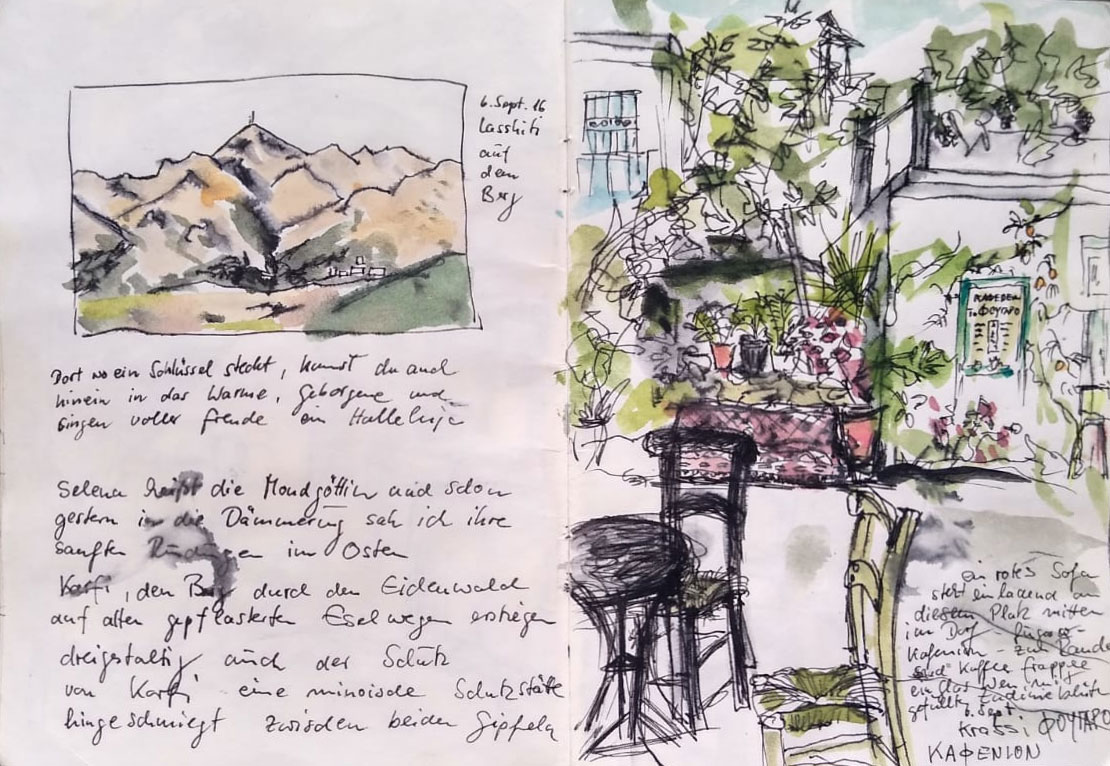 6. Sept. 16
Lasshiti
auf
dem
Berg
Dort wo ein Schlüssel steckt, kannst du auch
hinein in das Warme, Geborgene und
singen voller Freude ein Halleluja
Selena heißt die Mondgöttin und schon
gestern in die Dämmerung sah ich ihre
sanften im Osten
Karfi, den Berg durch den Eichenwald
auf alten gepflasterten Eselwegen erstiegen
dreigestaltig auch der Schutz
von Karfi eine minoische Schutzstätte
hingeschmiegt zwischen beiden Gipfeln
ΚΑΦΕΝΕΙΟΝ
Το ΦΟΥΓΑΡΟ
ein rotes Sofa
steht einladend an
diesem Platz mitten
im Dorf
Kafenion - zum Rande
sind Kaffee frappee
ein Glas
gefüllt
6. Sept.
Krassi ΦΟΥΓΑΡΟ
ΚΑΦΕΝΙΟΝ